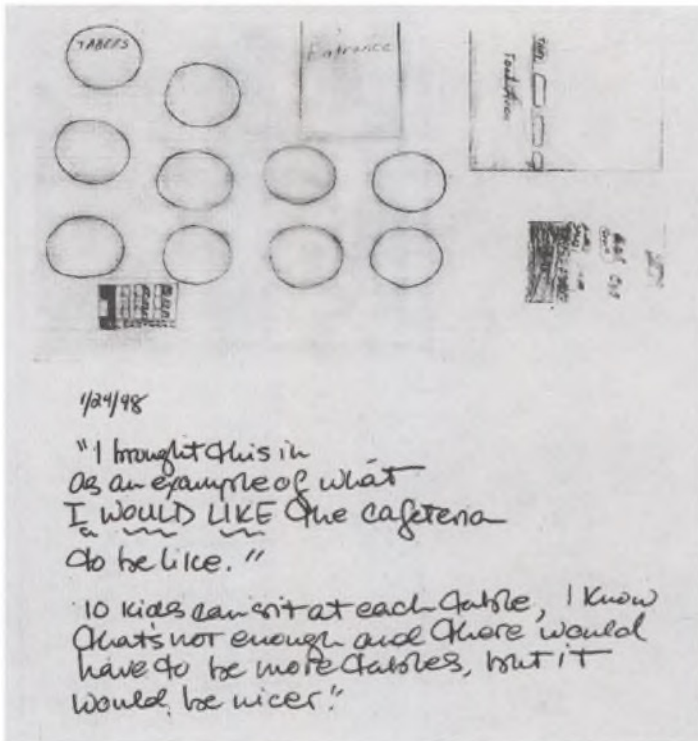 TABLES
Entrance
Food Area
1/24/98
"I brought this in
as an example of what
I WOULD LIKE the cafeteria
to be like."
10 kids can sit at each table, I know
that's not enough and there would
have to be more tables, but it
would be nicer."